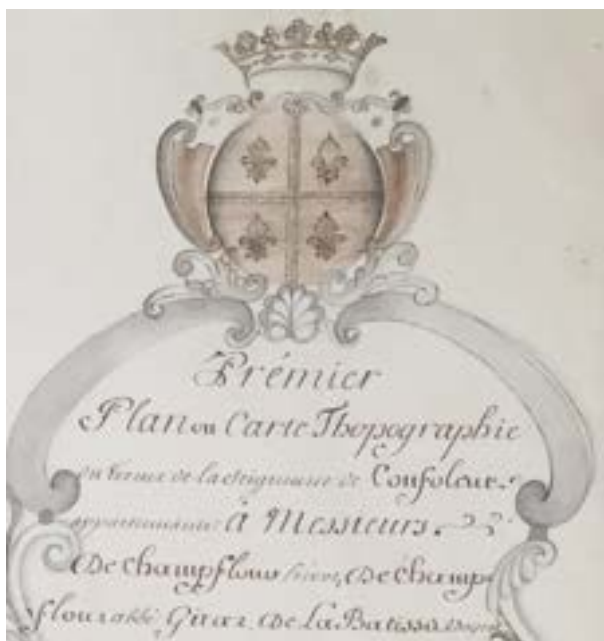 Prémier
Plan ou Carte Thopographie
de la seigneurie de Confolent
appartenante à Messieurs.
De champflour De champ
flour abbé Girar De La Batisse